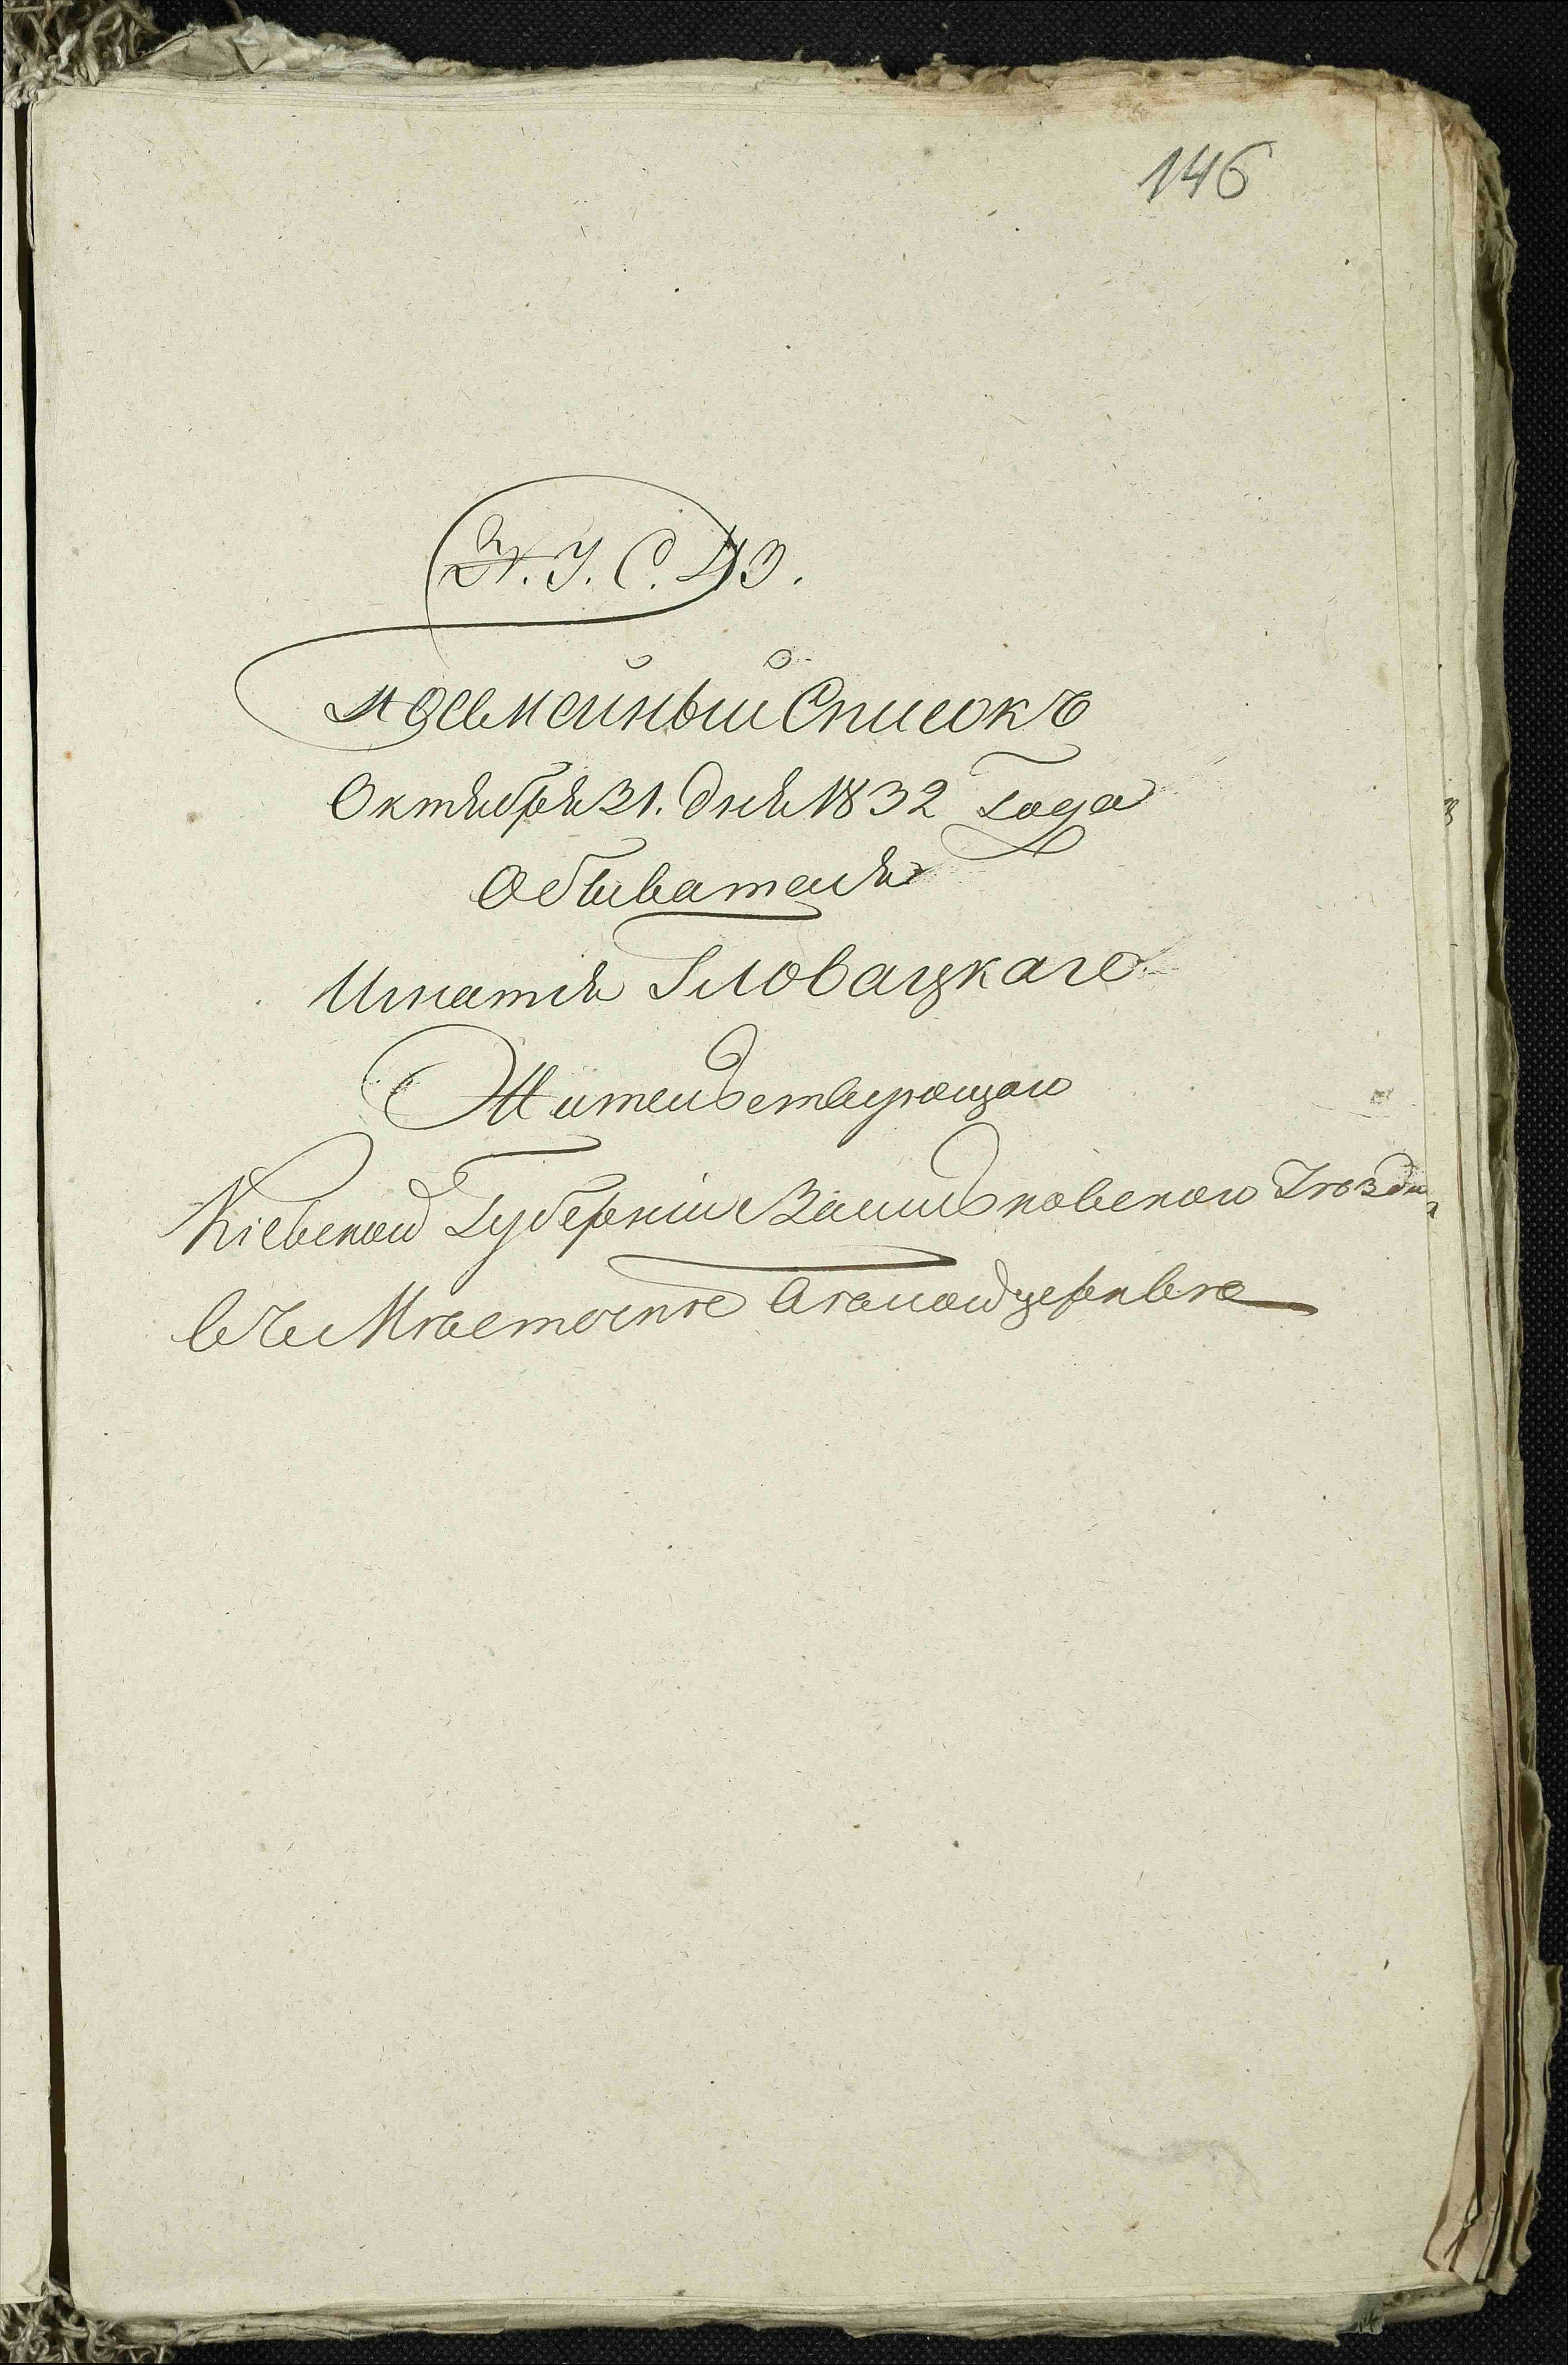 146
Посемейный Списокъ
Октября 31. дня 1832 Года
Обывателя
Игнатія Гловацкаго
Жительствующаго
Кіевской Губерніи Васильковскаго Уѣзда
въ Мѣстечке Белойцерквѣ